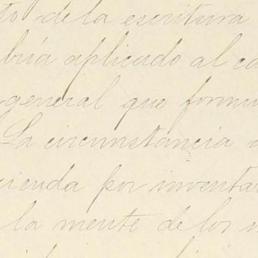 to de la escritura
bría aplicado al ca
general que formu
La circunstancia
cienda por inventa
la mente de los